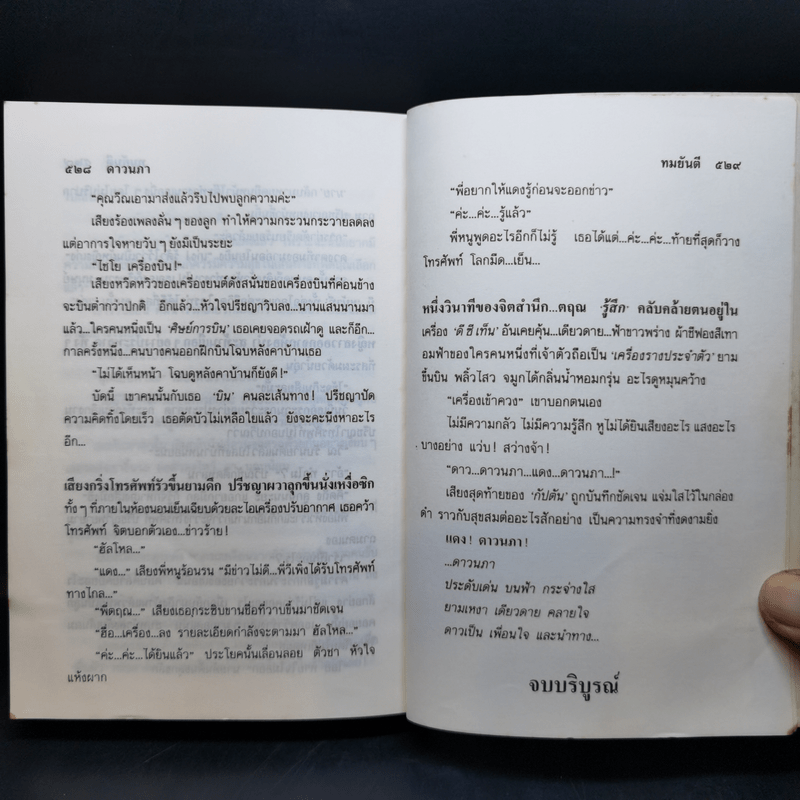 ๕๒๘ ดาวนภา
“คุณวีณเอามาส่งแล้วรีบไปพบลูกความค่ะ”
เสียงร้องเพลงลั่น ๆ ของลูก ทำให้ความกระวนกระวายลดลง
แต่อาการใจหายวับ ๆ ยังมีเป็นระยะ
“ไชโย เครื่องบิน!”
เสียงหวีดหวิวของเครื่องยนต์ดังสนั่นของเครื่องบินที่ค่อนข้าง
จะบินต่ำกว่าปกติ อีกแล้ว...หัวใจปรีชญาวิบลง...นานแสนนานมา
แล้ว...ใครคนหนึ่งเป็น ‘ศิษย์การบิน’ เธอเคยจอดรถเฝ้าดู และก็อีก...
กาลครั้งหนึ่ง...คนบางคนออกฝึกบินโฉบหลังคาบ้านเธอ
“ไม่ได้เห็นหน้า โฉบดูหลังคาบ้านก็ยังดี!”
บัดนี้ เขาคนนั้นกับเธอ ‘บิน’ คนละเส้นทาง! ปรีชญาปัด
ความคิดทิ้งโดยเร็ว เธอตัดบัวไม่เหลือใยแล้ว ยังจะคะนึงหาอะไร
อีก...
เสียงกริ่งโทรศัพท์รัวขึ้นยามดึก ปรีชญาผวาลุกขึ้นนั่งเหงื่อซิก
ทั้ง ๆ ที่ภายในห้องนอนเย็นเฉียบด้วยละไอเครื่องปรับอากาศ เธอคว้า
โทรศัพท์ จิตบอกตัวเอง...ข่าวร้าย!
“ฮัลโหล...”
“แดง...” เสียงพี่หนูร้อนรน “มีข่าวไม่ดี...พี่วีเพิ่งได้รับโทรศัพท์
ทางไกล...”
“พี่ตฤณ...” เสียงเธอกระซิบขานชื่อที่วาบขึ้นมาชัดเจน
“ฮื่อ...เครื่อง...ลง รายละเอียดกำลังจะตามมา ฮัลโหล...”
“ค่ะ...ค่ะ...ได้ยินแล้ว” ประโยคนั้นเลื่อนลอย ตัวชา หัวใจ
แห้งผาก
ทมยันตี ๕๒๙
“พี่อยากให้แดงรู้ก่อนจะออกข่าว”
“ค่ะ...ค่ะ...รู้แล้ว”
พี่หนูพูดอะไรอีกก็ไม่รู้ เธอได้แต่...ค่ะ...ค่ะ...ท้ายที่สุดก็วาง
โทรศัพท์ โลกมืด...เย็น...
หนึ่งวินาทีของจิตสำนึก...ตฤณ ‘รู้สึก’ คลับคล้ายตนอยู่ใน
เครื่อง ‘ดี ซี เท็น’ อันเคยคุ้น...เดียวดาย...ฟ้าขาวพร่าง ผ้าชีฟองสีเทา
อมฟ้าของใครคนหนึ่งที่เจ้าตัวถือเป็น ‘เครื่องรางประจำตัว’ ยาม
ขึ้นบิน พลิ้วไสว จมูกได้กลิ่นน้ำหอมกรุ่น อะไรดูหมุนคว้าง
“เครื่องเข้าควง” เขาบอกตนเอง
ไม่มีความกลัว ไม่มีความรู้สึก หูไม่ได้ยินเสียงอะไร แสงอะไร
บางอย่าง แว่บ! สว่างจ้า!
“ดาว...ดาวนภา...แดง...ดาวนภา...!”
เสียงสุดท้ายของ ‘กัปตัน’ ถูกบันทึกชัดเจน แจ่มใสไว้ในกล่อง
ดำ ราวกับสุขสมต่ออะไรสักอย่าง เป็นความทรงจำที่งดงามยิ่ง
แดง! ดาวนภา!
...ดาวนภา
ประดับเด่น บนฟ้า กระจ่างใส
ยามเหงา เดียวดาย คลายใจ
ดาวเป็น เพื่อนใจ และนำทาง...
จบบริบูรณ์